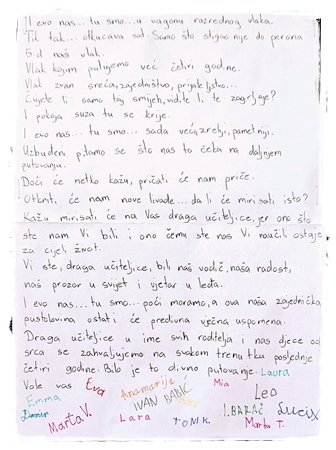 I evo nas... tu smo... u vagonu razrednog vlaka.
Tik tak... otkucava sat. Samo što stigao nije do perona
5.d naš vlak.
Vlak kojim putujemo već četiri godine.
Vlak zvan sreća, zajedništvo, prijateljstvo...
Čujete li samo taj smijeh, vidite li te zagrljaje?
I pokoja suza tu se krije.
I evo nas... tu smo... sada već, zreliji, pametniji.
Uzbuđeni pitamo se što nas to čeka na daljnjem
putovanju.
Doći će netko kažu, pričati će nam priče.
Otkrit, će nam nove livade... da li će mirisati isto?
Kažu mirisati će na Vas draga učiteljice, jer ono što
ste nam Vi bili i ono čemu ste nas Vi naučili ostaje
za cijeli život.
Vi ste, draga učiteljice, bili naš vodič, naša radost,
naš prozor u svijet i vjetar u leđa.
I evo nas... tu smo... poći moramo, a ova naša zajednička
pustolovina ostati će predivna vječna uspomena.
Draga učiteljice u ime svih roditelja i nas djece od
srca se zahvaljujemo na svakom trenutku posljednje
četiri godine. Bilo je to divno putovanje. Laura
Vole vas Eva Anamarija Mia
Emma IVAN BABIĆ Leo
Damir Marta V. Lara TONI K. I. BARAĆ Marta T.